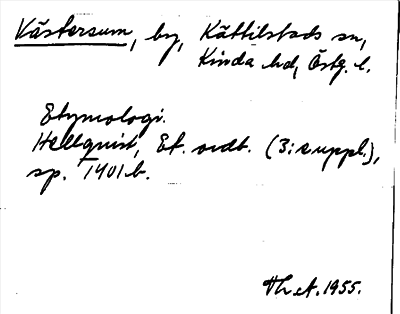 Västersum, by, Kättilstads sn,
Kinda hd, Östg. l.
Etymologi.
Hellquist, Et. ordb. (3:e uppl.),
sp. 1401 b.
Th. A. 1955.